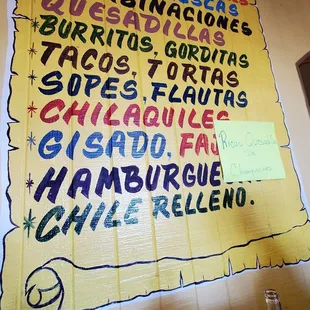 QUESADILLAS
BURRITOS, GORDITAS
* TACOS, TORTAS
* SOPES, FLAUTAS
* CHILAQUILES
* GISADO, FA
* HAMBURGUE
* CHILE RELLENO.